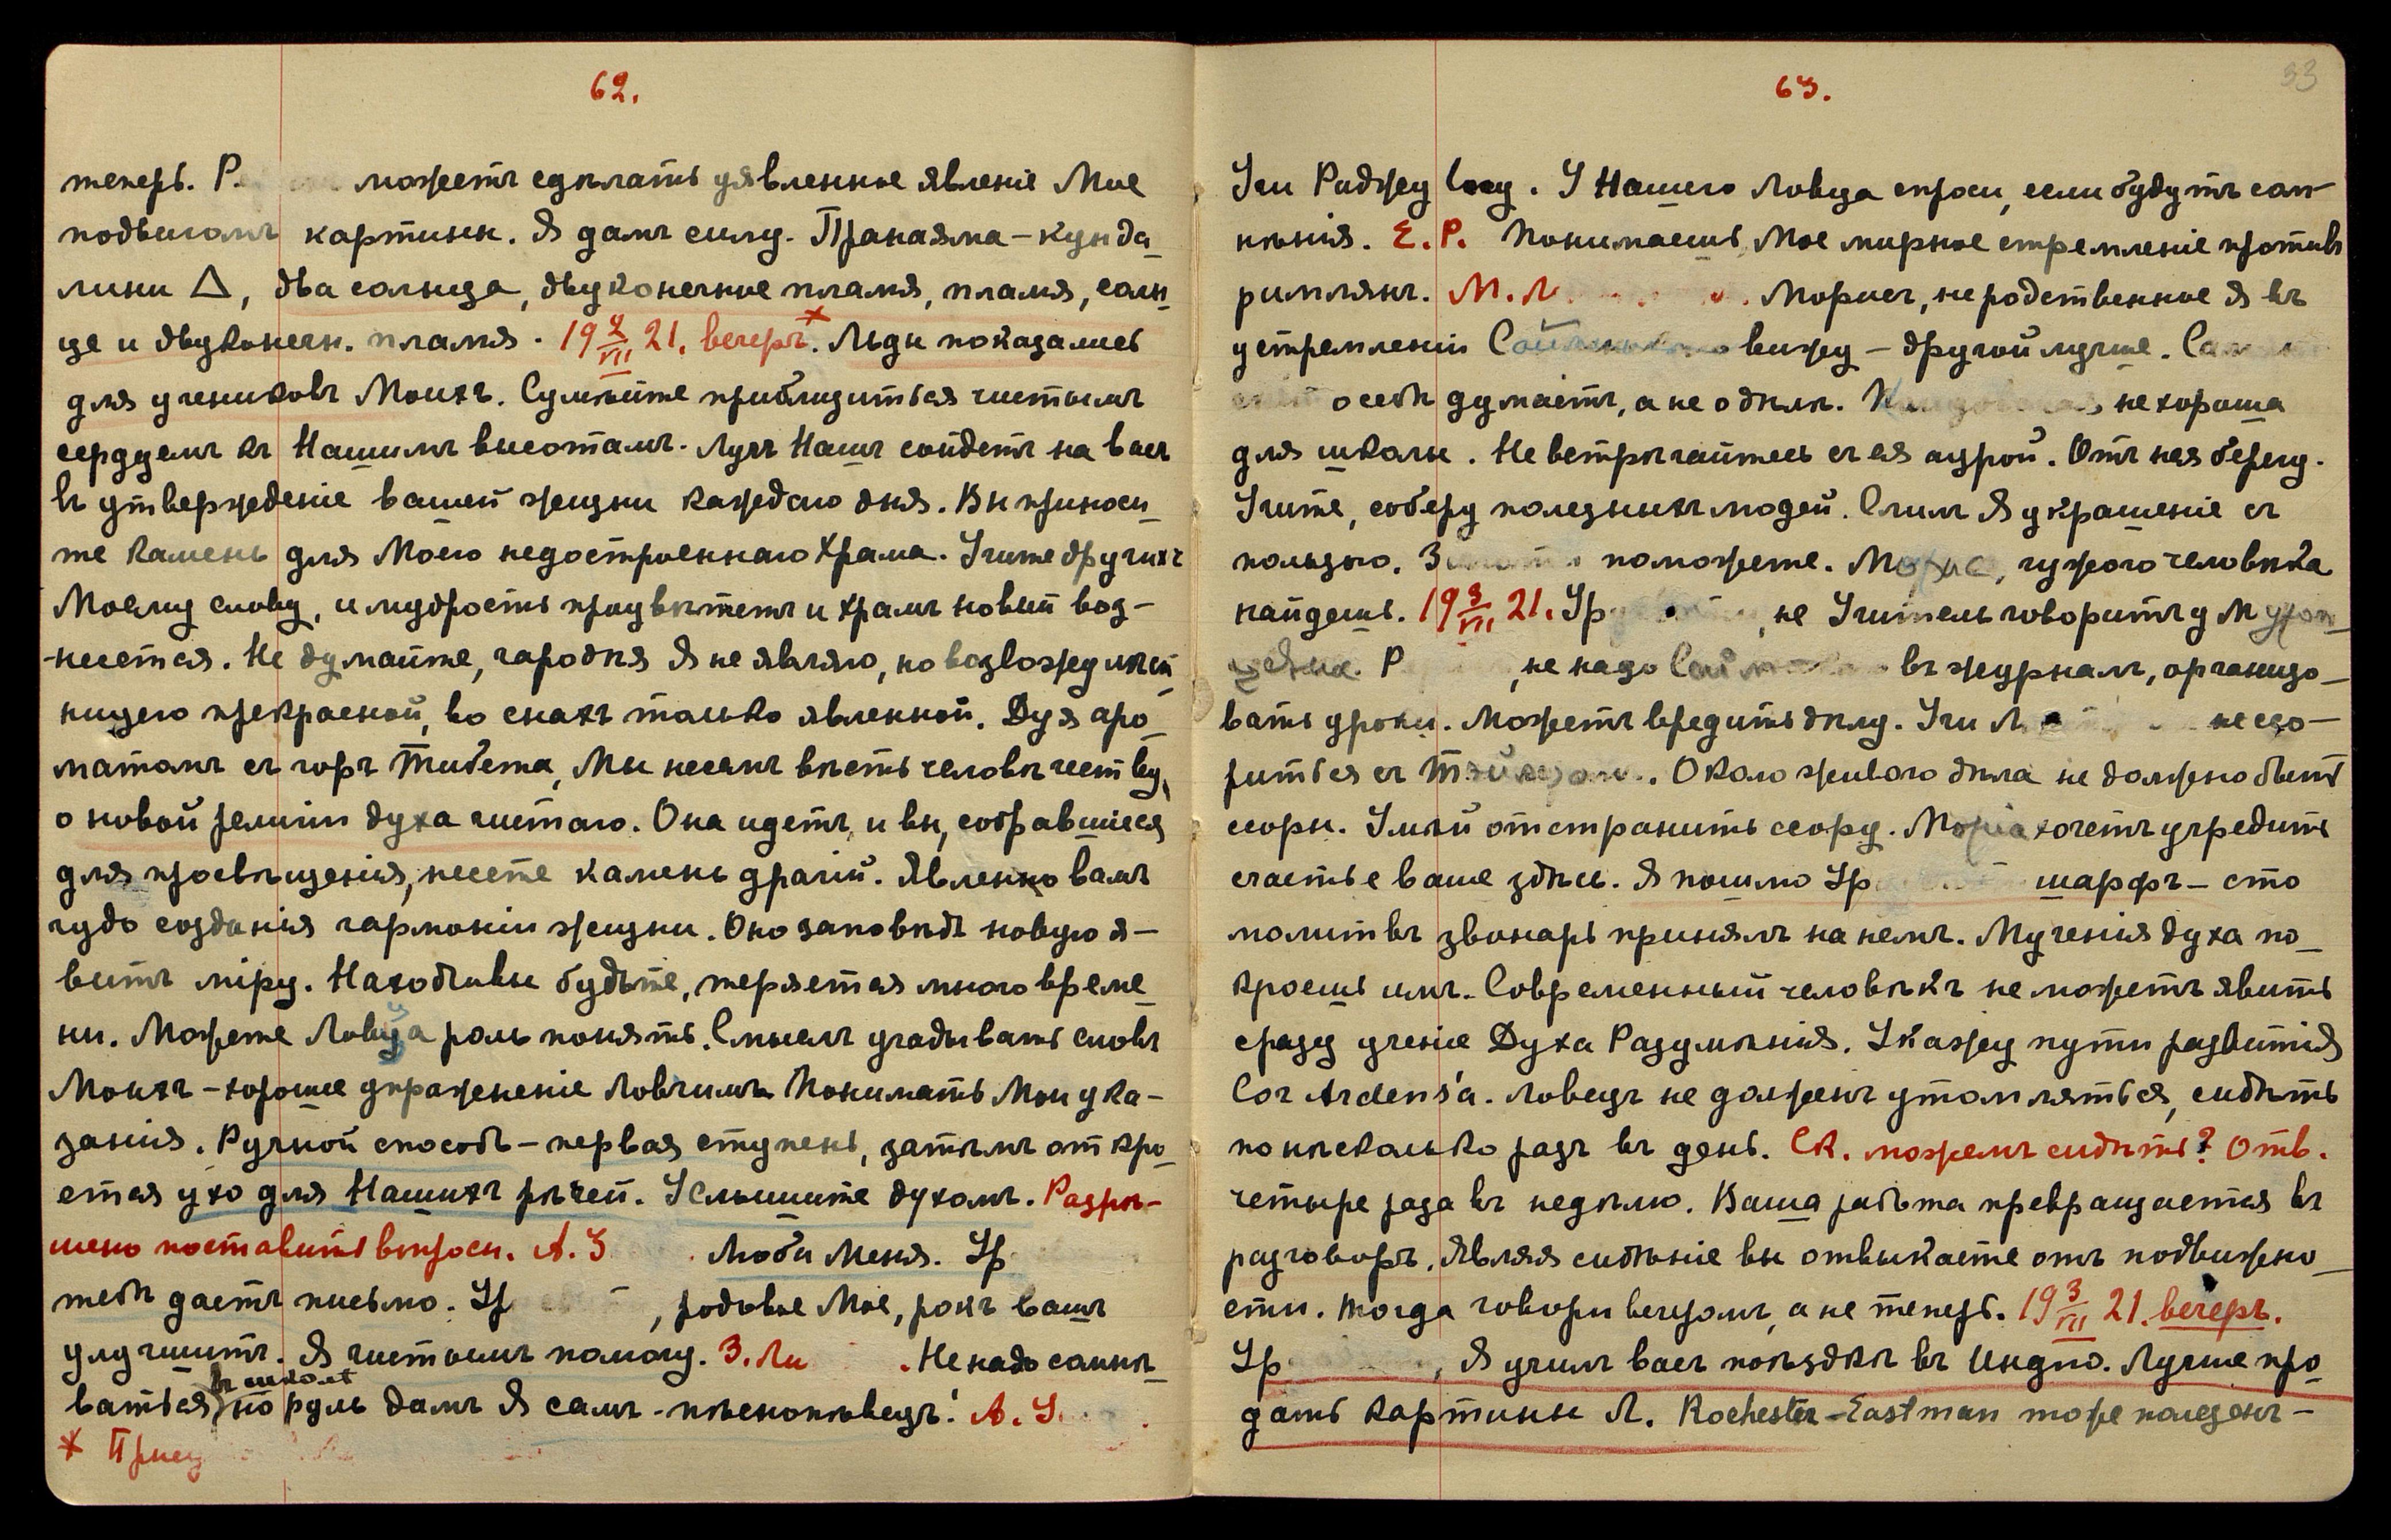 62.
теперь. Р. можетъ сдѣлать уявленное явленіе Мое
подвигомъ картины. Я дамъ силу. Пранаяма – кунда_
лини △, два солнца, двуконечное пламя, пламя, солн_
це и двуконечн. пламя. 19 2/VII 21. вечеръ.* Льды показались
для учениковъ Моихъ. Сумѣйте приблизиться чистымъ
сердцемъ къ Нашимъ высотамъ. Лучъ Нашъ сойдетъ на васъ
въ утвержденіе вашей жизни каждаго дня. Вы приноси_
те камень для Моего недостроеннаго Храма. Учите другихъ
Моему слову, и мудрость процвѣтетъ и храмъ новый воз-
-несется. Не думайте, чародѣя Я не являю, но возвожу
нищего прекрасной, во снахъ только явленной. Дуя аро_
матомъ съ горъ Тибета, Мы несемъ вѣсть человѣчеству,
о новой религіи духа чистаго. Она идетъ, и вы, собравшіеся
для просвѣщенія, несете камень драгій. Явленно вамъ
чудо созданія гармоніи жизни. Оно заповѣдь новую я–
витъ міру. Находчивы будьте, теряется много време_
ни. Можете Ловца роль понять. Смыслъ угадывать словъ
Моихъ – хорошее упражненіе Ловчимъ Понимать Мои ука-
занія. Ручной способъ – первая ступень, затѣмъ откро_
ется ухо для Нашихъ рѣчей. Услышите духомъ. Разрѣ–
шено поставить вопросы. А. З Люби Меня. Ур
тебѣ дастъ письмо. Ур , родовое Мое, рокъ вашъ
улучшитъ. Я чистымъ помогу. З. Ли . Не надо сомнѣ_
въ школѣ
ваться, но руль дамъ Я самъ - пѣснопѣвецъ! А. У
* Приѣз
63.
33
Учи Раджеу . У Нашего Ловца спроси, если будутъ сом–
нѣнія. Е. Р. Понимаешь, Мое мирное стремленіе противъ
римлянъ. М. Л . Морисъ, не родственное Я въ
устремленіи вижу – другой лучше.
о себѣ думаетъ, а не о дѣлѣ. не хороша
для школы. Не встрѣчайтесь съ ея аурой. Отъ нея берегу.
Учите, соберу полезныхъ людей. Слилъ Я украшеніе съ
пользою. З поможете. Морисъ, чужого человѣка
найдешь. 19 3/VII 21. Ур , не Учитель говоритъ у
Р , не надо въ журналъ, организо_
вать уроки. Можетъ вредить дѣлу. Учи Л не ссо–
риться съ . Около живого дѣла не должно быть
ссоры. Умѣй отстранить ссору. Моріа хочетъ учредить
счастье ваше здѣсь. Я пошлю Ур шарфъ – сто
молитвъ звонарь принялъ на немъ. Мученія духа по_
кроешь имъ. Современный человѣкъ не можетъ явить
сразу ученіе Духа Разумѣнія. Укажу пути развитія
Cor Ardens'а. Ловецъ не долженъ утомляться, сидѣть
по нѣсколько разъ въ день. Ск. можемъ сидѣть? Отв.
четыре раза въ недѣлю. Ваша работа превращается въ
разговоръ. Являя сидѣніе вы отвыкаете отъ подвижно_
сти. Тогда говори вечеромъ, а не теперь. 19 3/VII 21. вечеръ.
Ур , Я училъ васъ поѣздкѣ въ Индію. Лучше про_
дать картины Л. Rochester – Eastman тоже полезенъ –